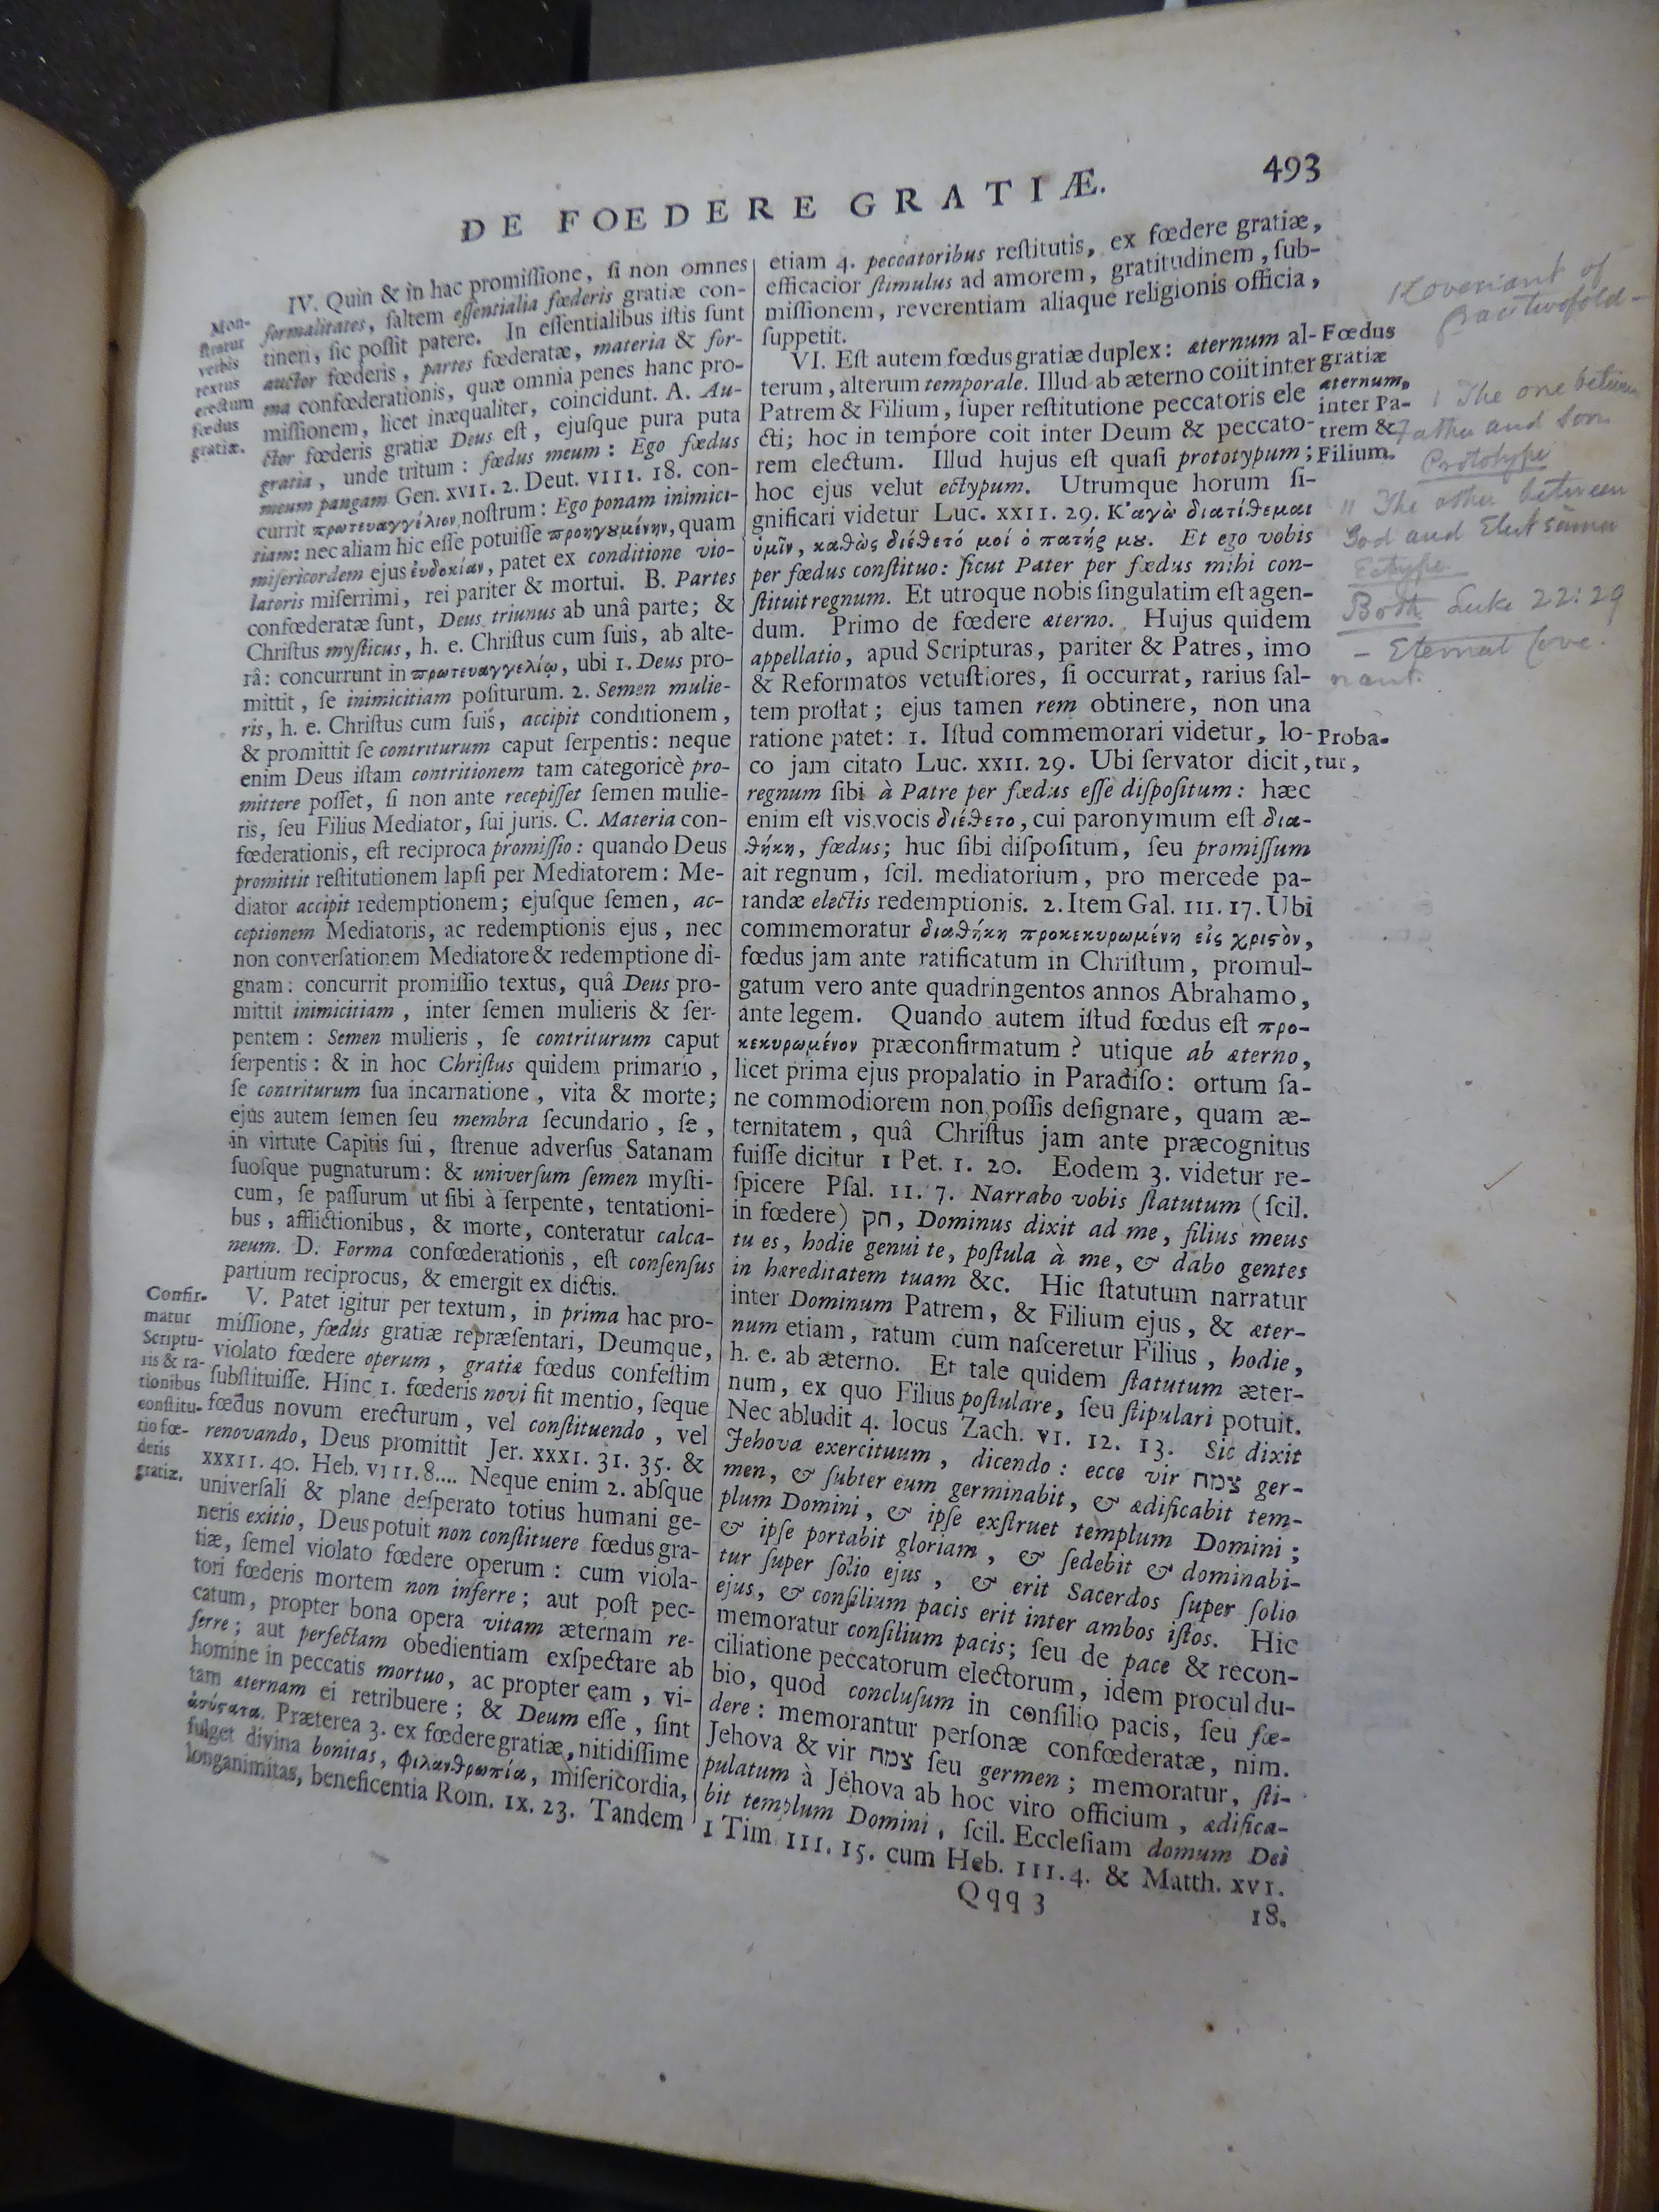 DE FOEDERE GRATIÆ.
493
IV. Quin & in hac promiſſione, ſi non omnes
formalitates, ſaltem eſſentialia fœderis gratiæ con-
tineri, ſic poſſit patere. In eſſentialibus iſtis ſunt
auctor fœderis, partes fœderatæ, materia & for-
ma confœderationis, quæ omnia penes hanc pro-
miſſionem, licet inæqualiter, coincidunt. A. Au-
ctor fœderis gratiæ Deus eſt, ejuſque pura puta
gratia, unde tritum: fœdus meum: Ego fœdus
meum pangam Gen. XVII. 2. Deut. VIII. 18. con-
currit πρωτευαγγέλιον noſtrum: Ego ponam inimici-
tiam: nec aliam hic eſſe potuiſſe προηγȣμένην, quam
miſericordem ejus ἐυδοκίαν, patet ex conditione vio-
latoris miſerrimi, rei pariter & mortui. B. Partes
confœderatæ ſunt, Deus triunus ab unâ parte; &
Chriſtus myſticus, h. e. Chriſtus cum ſuis, ab alte-
râ: concurrunt in πρωτευαγγελίῳ, ubi 1. Deus pro-
mittit, ſe inimicitiam poſiturum. 2. Semen mulie-
ris, h. e. Chriſtus cum ſuis, accipit conditionem,
& promittit ſe contriturum caput ſerpentis: neque
enim Deus iſtam contritionem tam categoricè pro-
mittere poſſet, ſi non ante recepiſſet ſemen mulie-
ris, ſeu Filius Mediator, ſui juris. C. Materia con-
fœderationis, eſt reciproca promiſſio: quando Deus
promittit reſtitutionem lapſi per Mediatorem: Me-
diator accipit redemptionem; ejuſque ſemen, ac-
ceptionem Mediatoris, ac redemptionis ejus, nec
non converſationem Mediatore & redemptione di-
gnam: concurrit promiſſio textus, quâ Deus pro-
mittit inimicitiam, inter ſemen mulieris & ſer-
pentem: Semen mulieris, ſe contriturum caput
ſerpentis: & in hoc Chriſtus quidem primario,
ſe contriturum ſua incarnatione, vita & morte;
ejus autem ſemen ſeu membra ſecundario, ſe,
in virtute Capitis ſui, ſtrenue adverſus Satanam
ſuoſque pugnaturum: & univerſum ſemen myſti-
cum, ſe paſſurum ut ſibi à ſerpente, tentationi-
bus, afflictionibus, & morte, conteratur calca-
neum. D. Forma confœderationis, eſt conſenſus
partium reciprocus, & emergit ex dictis.
V. Patet igitur per textum, in prima hac pro-
miſſione, fœdus gratiæ repræſentari, Deumque,
violato fœdere operum, gratiæ fœdus confeſtim
ſubſtituiſſe. Hinc 1. fœderis novi fit mentio, ſeque
fœdus novum erecturum, vel conſtituendo, vel
renovando, Deus promittit Jer. XXXI. 31. 35. &
XXXII. 40. Heb. VIII. 8.... Neque enim 2. abſque
univerſali & plane deſperato totius humani ge-
neris exitio, Deus potuit non conſtituere fœdus gra-
tiæ, ſemel violato fœdere operum: cum viola-
tori fœderis mortem non inferre; aut poſt pec-
catum, propter bona opera vitam æternam re-
ferre; aut perfectam obedientiam exſpectare ab
homine in peccatis mortuo, ac propter eam, vi-
tam æternam ei retribuere; & Deum eſſe, ſint
ἀσύςατα. Præterea 3. ex fœdere gratiæ, nitidiſſime
fulget divina bonitas, φιλανθρωπία, miſericordia,
longanimitas, beneficentia Rom. IX. 23. Tandem
Mon-
ſtratur
verbis
textus
erectum
fœdus
gratiæ.
Confir-
matur
Scriptu-
ris & ra-
tionibus
conſtitu-
tio fœ-
deris
gratiæ.
etiam 4. peccatoribus reſtitutis, ex fœdere gratiæ,
efficacior ſtimulus ad amorem, gratitudinem, ſub-
miſſionem, reverentiam aliaque religionis officia,
ſuppetit.
VI. Eſt autem fœdus gratiæ duplex: æternum al-
terum, alterum temporale. Illud ab æterno coiit inter
Patrem & Filium, ſuper reſtitutione peccatoris ele
cti; hoc in tempore coit inter Deum & peccato-
rem electum. Illud hujus eſt quaſi prototypum;
hoc ejus velut ectypum. Utrumque horum ſi-
gnificari videtur Luc. XXII. 29. Κ'αγὼ διατίθεμαι
ὑμῖν, καθὼς διέθετό μοί ὁ πατής μȣ. Et ego vobis
per fœdus conſtituo: ſicut Pater per fœdus mihi con-
ſtituit regnum. Et utroque nobis ſingulatim eſt agen-
dum. Primo de fœdere æterno. Hujus quidem
appellatio, apud Scripturas, pariter & Patres, imo
& Reformatos vetuſtiores, ſi occurrat, rarius ſal-
tem proſtat; ejus tamen rem obtinere, non una
ratione patet: 1. Iſtud commemorari videtur, lo-
co jam citato Luc. XXII. 29. Ubi ſervator dicit,
regnum ſibi à Patre per fœdus eſſe diſpoſitum: hæc
enim eſt vis vocis διέθετο, cui paronymum eſt δια-
θήκη, fœdus; huc ſibi diſpoſitum, ſeu promiſſum
ait regnum, ſcil. mediatorium, pro mercede pa-
randæ electis redemptionis. 2. Item Gal. III. 17. Ubi
commemoratur διαθήκη προκεκυρωμένη εἰς χριςὸν,
fœdus jam ante ratificatum in Chriſtum, promul-
gatum vero ante quadringentos annos Abrahamo,
ante legem. Quando autem iſtud fœdus eſt προ-
κεκυρωμένον præconfirmatum? utique ab æterno,
licet prima ejus propalatio in Paradiſo: ortum ſa-
ne commodiorem non poſſis deſignare, quam æ-
ternitatem, quâ Chriſtus jam ante præcognitus
fuiſſe dicitur 1 Pet. I. 20. Eodem 3. videtur re-
ſpicere Pſal. II. 7. Narrabo vobis ſtatutum (ſcil.
in fœdere) חק, Dominus dixit ad me, filius meus
tu es, hodie genui te, poſtula à me, & dabo gentes
in hæreditatem tuam &c. Hic ſtatutum narratur
inter Dominum Patrem, & Filium ejus, & æter-
num etiam, ratum cum naſceretur Filius, hodie,
h. e. ab æterno. Et tale quidem ſtatutum æter-
num, ex quo Filius poſtulare, ſeu ſtipulari potuit.
Nec abludit 4. locus Zach. VI. 12. 13. Sic dixit
Jehova exercituum, dicendo: ecce vir צמח ger-
men, & ſubter eum germinabit, & ædificabit tem-
plum Domini, & ipſe exſtruet templum Domini;
& ipſe portabit gloriam, & ſedebit & dominabi-
tur ſuper ſolio ejus, & erit Sacerdos ſuper ſolio
ejus, & conſilium pacis erit inter ambos iſtos. Hic
memoratur conſilium pacis; ſeu de pace & recon-
ciliatione peccatorum electorum, idem procul du-
bio, quod concluſum in conſilio pacis, ſeu fœ-
dere: memorantur perſonæ confœderatæ, nim.
Jehova & vir צמח ſeu germen; memoratur, ſti-
pulatum à Jehova ab hoc viro officium, ædifica-
bit templum Domini, ſcil. Eccleſiam domum Dei
1 Tim III. 15. cum Heb. III. 4. & Matth. XVI.
Qqq 3
18.
Fœdus
gratiæ
æternum,
inter Pa-
trem &
Filium.
Proba-
tur,
Covenant of
Grace twofold -
1 The one between
Father and Son
Prototype
11 The other between
God and Elect sinner
Ectype
Both Luke 22:29
- Eternal Cove
nant.